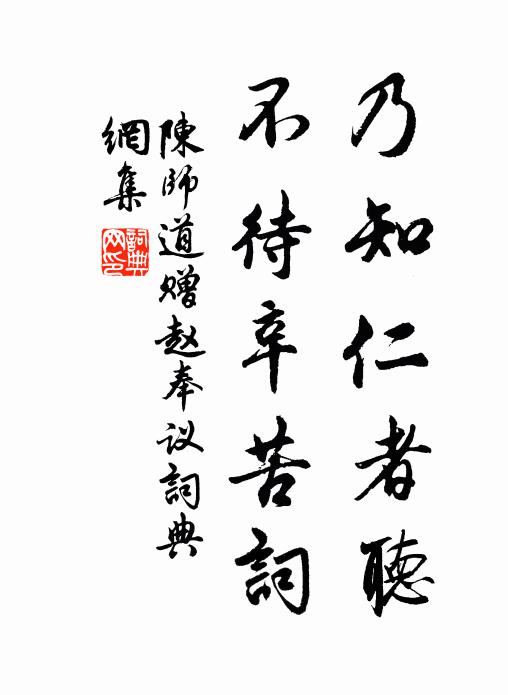 乃知仁者聽
不待辛苦詞
陳师道赠赵奉议詞典
網集
詞典
网印